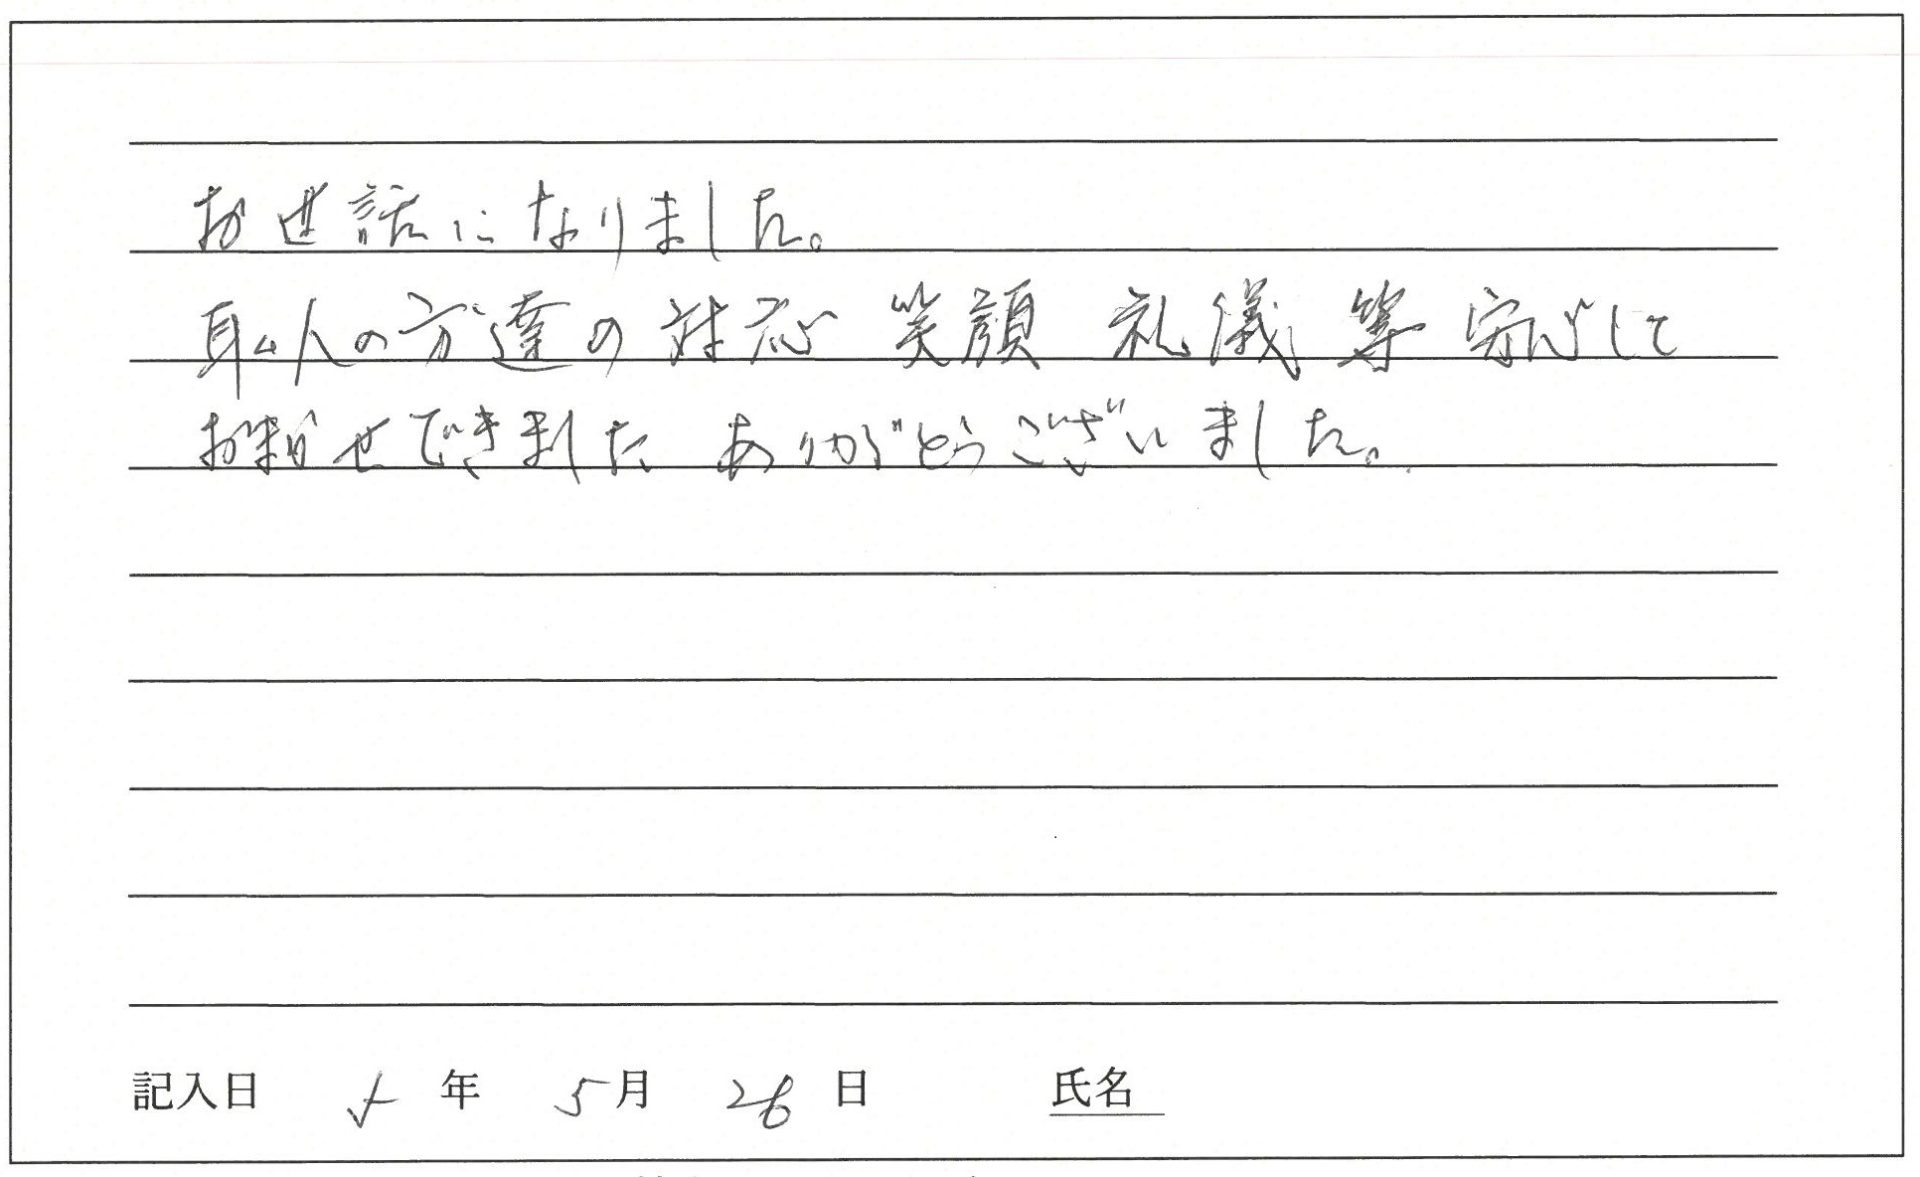 お世話になりました。
職人の方達の対応 笑顔 礼儀 等 安心して
おまかせできました ありがとうございました。
記入日 年 5月 26日 氏名